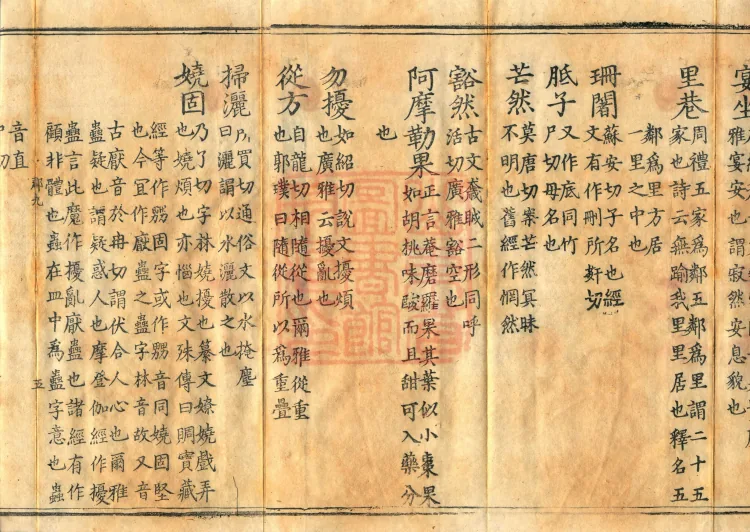 宴坐
雅宴安也謂寂然安息貌也
里巷周禮五家為鄰五鄰為里謂二十五
家也詩云無踰我里里居也釋名五
鄰為里方居
一里之中也
珊闍蘇安切子名也經
文有作刪所姧切
胝子又作底同竹
尸切母名也
芒然莫唐切寮芒然冥昧
不明也舊經作惘然
豁然古文奯二形同呼
活切廣雅豁空也
阿摩勒果正言菴磨羅果其葉似小棗果
如胡桃味酸而且甜可入藥分
也
勿擾如紹切說文擾煩
也廣雅云擾亂也
從方自龍切相隨從也爾雅從重
也郭璞曰隨從所以為重疊
掃灑所買切通俗文以水掩塵
曰灑謂以水灑散之也
嬈固乃了切字林嬈擾也纂文嫽嬈戲弄
也嬈煩也亦惱也文殊傳曰賙實藏
經等作固字或作音同嬈固堅
也今冝作厭蠱之蠱字林音故又音
古厭音於冉切謂伏合人心也爾雅
蠱疑也謂疑惑人也摩登伽經作擾
蠱言此魔作擾亂厭蠱也諸經有作
顧非體也蟲在皿中為蠱字意也蟲
九
五
音直
切